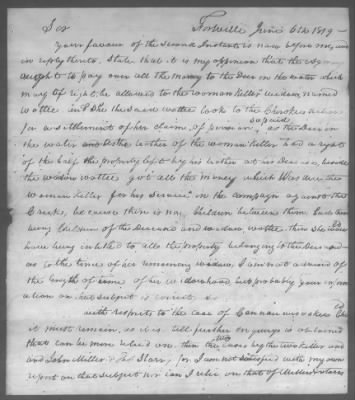 Fortville June 6th 1819
Sir
Your favour of the Second Instant is now before me, and
in reply thereto. State that it is my opinion that the agent
ought to pay over all the money to the Deer in the water which
may of right be allowed to the woman Killer widow, named
Wattee and the said Wattee look to the Cherokee nation
for a settlement of her claims, if poor or as the Deer in
the water the brother of the woman Killer had a right
of the half the property left by his brother at his decease, besides
the widow Wattee got all the money which was due the
woman Killer for his Services in the campaign against the
Creeks, because there is no Children between them had there
being Children of the Deceased and widow Wattee then she
have being entitled to all the property belonging to the Deceased
as to the time of her remaining widow, I am not advised of
the length of time of her widowhood but probably your
on that subject is correct &c
with respects to the case of
it must remain as it is till further enquirys is obtained
that can be more relied on than the was by the two Killer and
and John Miller & Thos Starr, for I am not satisfied with my own
report on that subject nor can I relie on that of Miller & Starrs